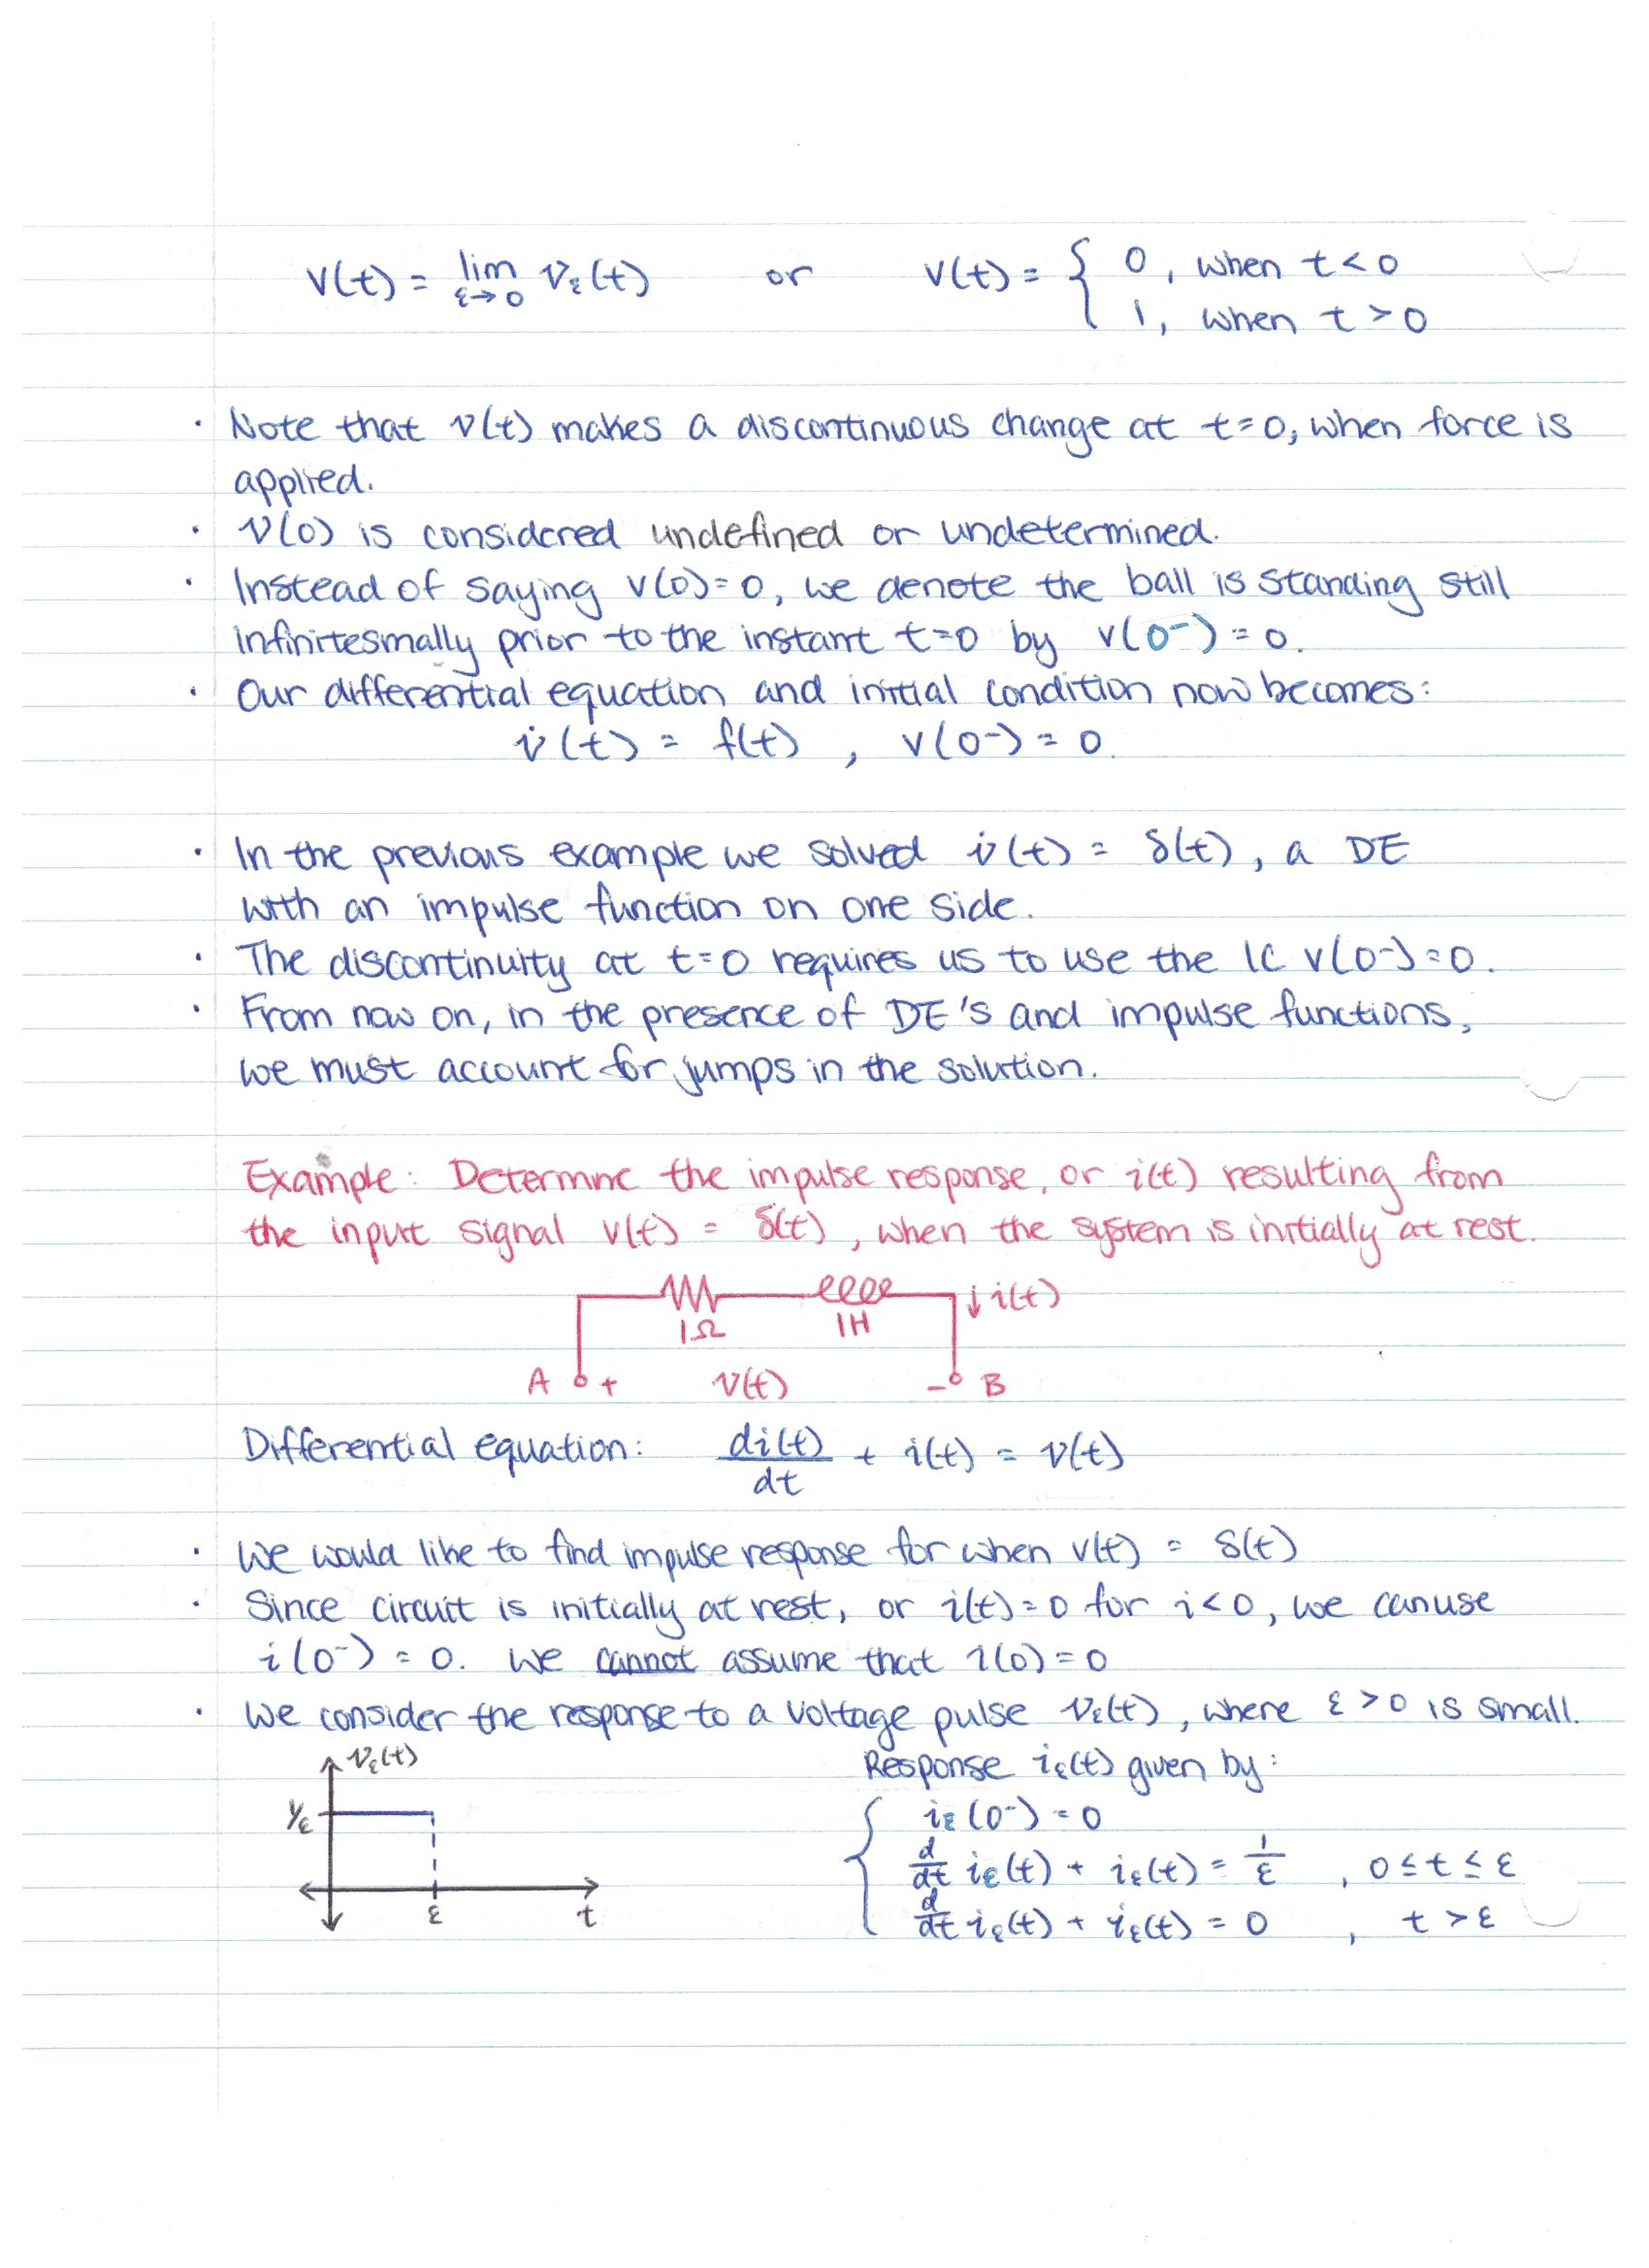 v(t) = lim ε→0 vε(t) or v(t) = { 0, when t < 0
1, when t > 0
· Note that v(t) makes a discontinuous change at t=0, when force is
applied.
· v(0) is considered undefined or undetermined.
· Instead of saying v(0)=0, we denote the ball is standing still
infinitesmally prior to the instant t=0 by v(0⁻) = 0.
· Our differential equation and initial condition now becomes:
v̇(t) = f(t) , v(0⁻) = 0.
· In the previous example we solved v̇(t) = δ(t), a DE
with an impulse function on one side.
· The discontinuity at t=0 requires us to use the IC v(0⁻)=0.
· From now on, in the presence of DE's and impulse functions,
we must account for jumps in the solution.
Example: Determine the impulse response, or i(t) resulting from
the input signal v(t) = δ(t), when the system is initially at rest.
↓ i(t)
1Ω 1H
A + v(t) - B
Differential equation: di(t)/dt + i(t) = v(t)
· We would like to find impulse response for when v(t) = δ(t)
· Since circuit is initially at rest, or i(t)=0 for i<0, we can use
i(0⁻) = 0. We cannot assume that i(0)=0
· We consider the response to a voltage pulse vε(t), where ε>0 is small.
vε(t) Response iε(t) given by:
1/ε { iε(0⁻) = 0
d/dt iε(t) + iε(t) = 1/ε , 0 ≤ t ≤ ε
ε t d/dt iε(t) + iε(t) = 0 , t > ε